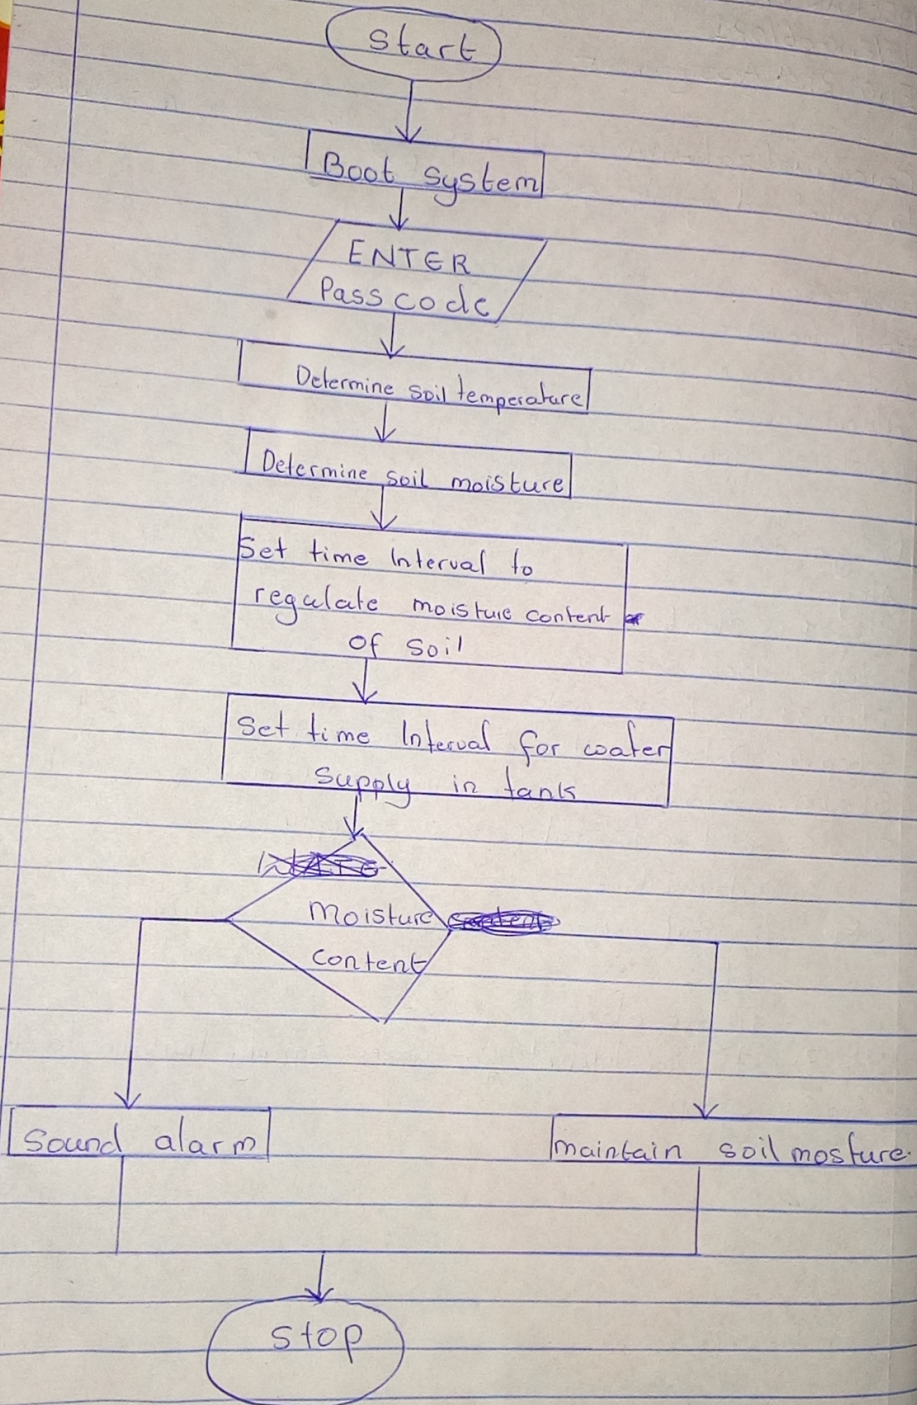 Start
Boot system
ENTER
Passcode
Determine soil temperature
Determine soil moisture
Set time Interval to
regulate moisture content
of soil
Set time Interval for water
supply in tank
Moisture
content
Sound alarm
maintain soil mosture.
Stop